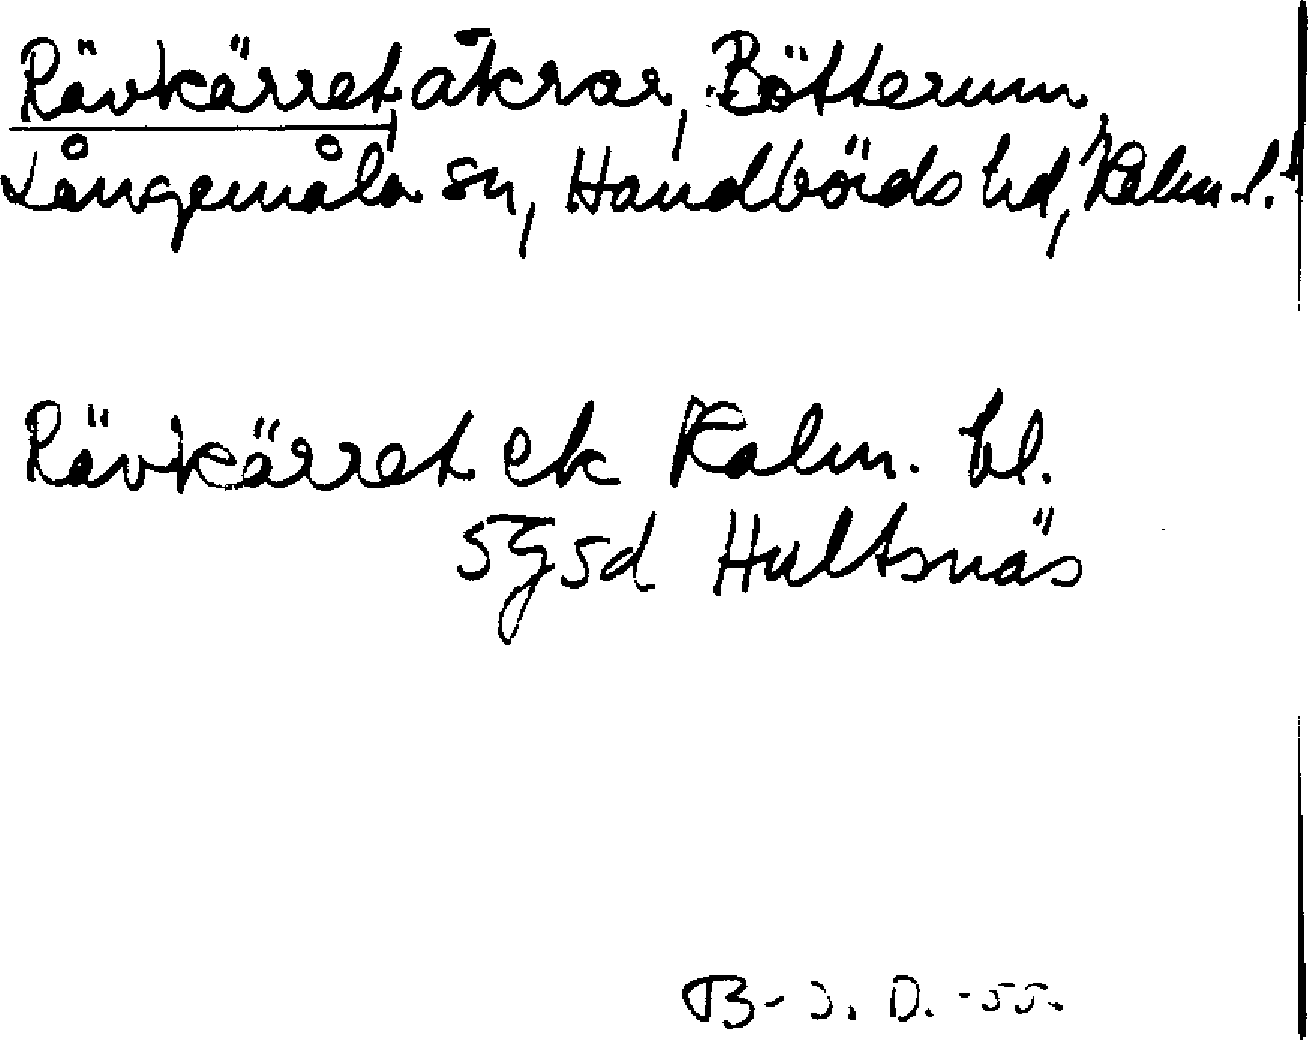 Rävkärret, åkrar, Bötterum,
Långemåla sn, Handbörds hd, Kalm. l.
Rävkärret ek Kalm. bl.
5g5d Hultsnäs
B-J. D. -55.